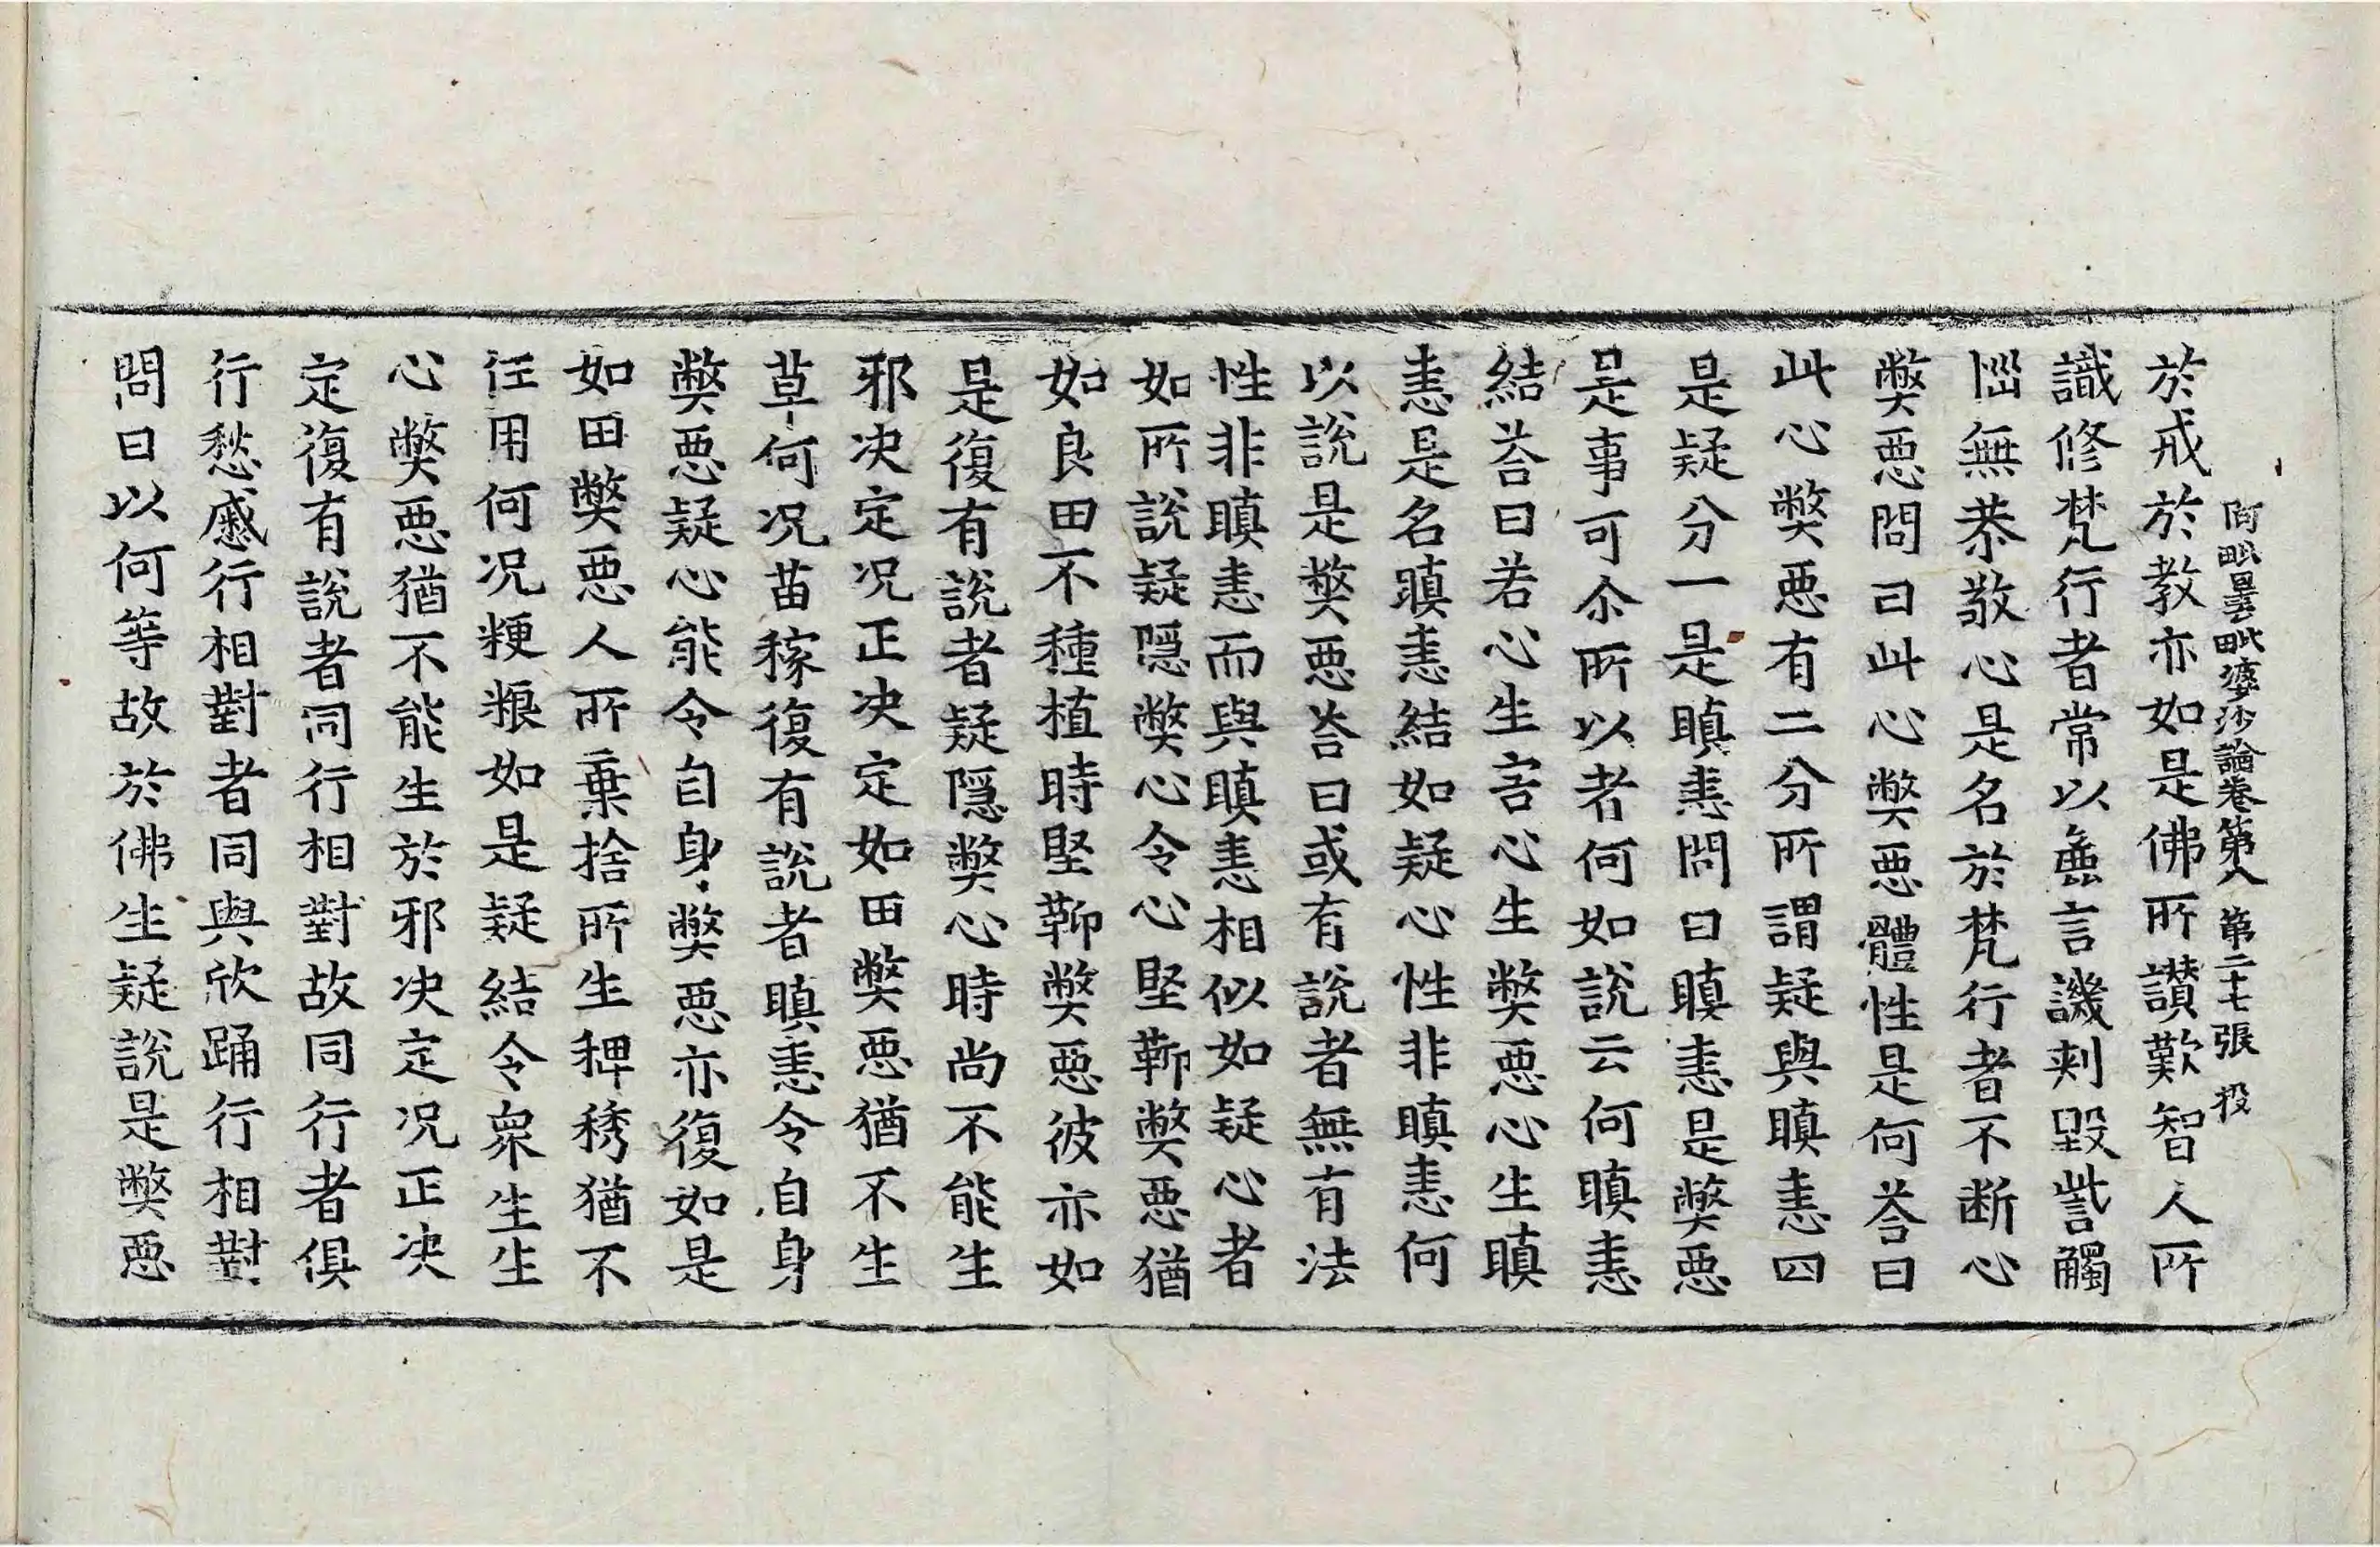 阿毗曇毗婆沙論卷第八 第二十七張 投
於戒於教亦如是佛所讃歎智人所
識修梵行者常以麁言譏刾毀訾觸
惱無恭敬心是名於梵行者不断心
弊惡問曰此心弊惡體性是何荅曰
此心弊惡有二分所謂疑與瞋恚四
是疑分一是瞋恚問曰瞋恚是弊惡
是事可尒所以者何如說云何瞋恚
結荅曰若心生害心生弊惡心生瞋
恚是名瞋恚結如疑心性非瞋恚何
以說是弊惡荅曰或有說者無有法
性非瞋恚而與瞋恚相似如疑心者
如所說疑隱弊心令心堅鞕弊惡猶
如良田不種植時堅鞕弊惡彼亦如
是復有說者疑隱弊心時尚不能生
邪决定况正决定如田弊惡猶不生
草何况苗稼復有說者瞋恚令自身
弊惡疑心能令自身弊惡亦復如是
如田弊惡人所棄捨所生稗莠猶不
任用何况粳粮如是疑結令衆生生
心弊惡猶不能生於邪决定况正决
定復有說者同行相對故同行者俱
行愁慼行相對者同與欣踊行相對
問曰以何等故於佛生疑說是弊惡